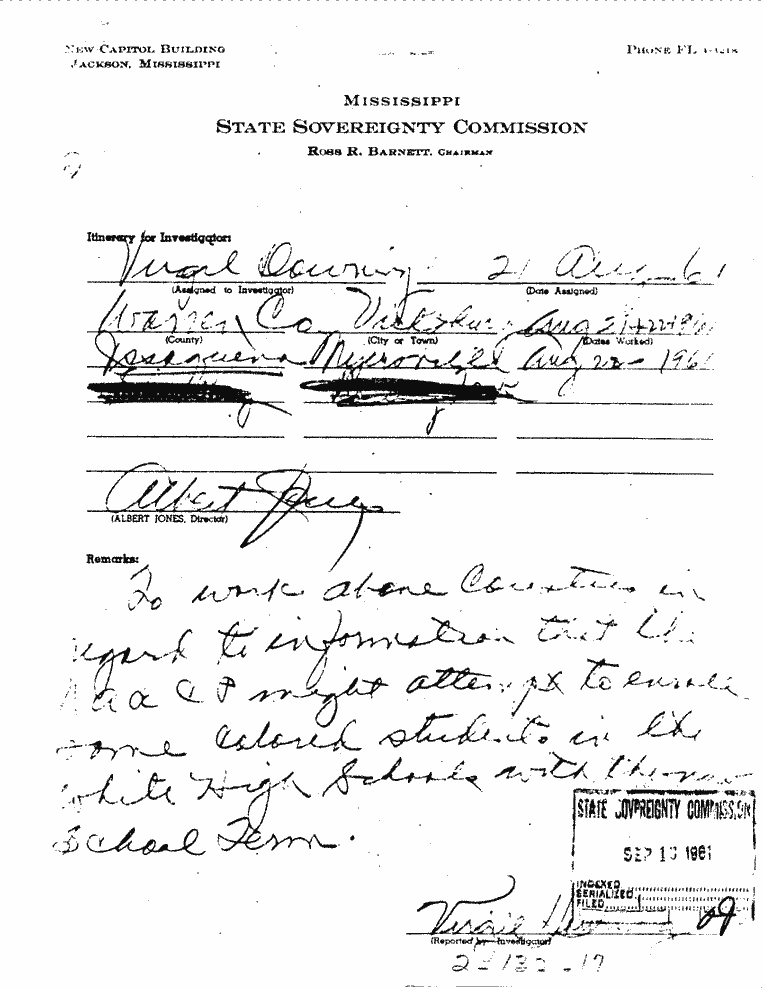 NEW CAPITOL BUILDING
JACKSON, MISSISSIPPI
PHONE FL
MISSISSIPPI
STATE SOVEREIGNTY COMMISSION
ROSS R. BARNETT, CHAIRMAN
Itinerary for Investigator:
Virgil Downing 21 Aug - 61
(Assigned to Investigator) (Date Assigned)
Warren Co Vicksburg Aug 21 + 22 - 1961
(County) (City or Town) (Dates Worked)
Issaquena Aug 22 - 1961
Albert Jones
(ALBERT JONES, Director)
Remarks:
To work above Counties in
regard to information that the
NaaCP might attempt to enroll
some colored students in the
white High Schools with the new
School Term.
STATE SOVEREIGNTY COMMISSION
SEP 13 1961
INDEXED
SERIALIZED
FILED
Virgil Downing
(Reported by - Investigator)